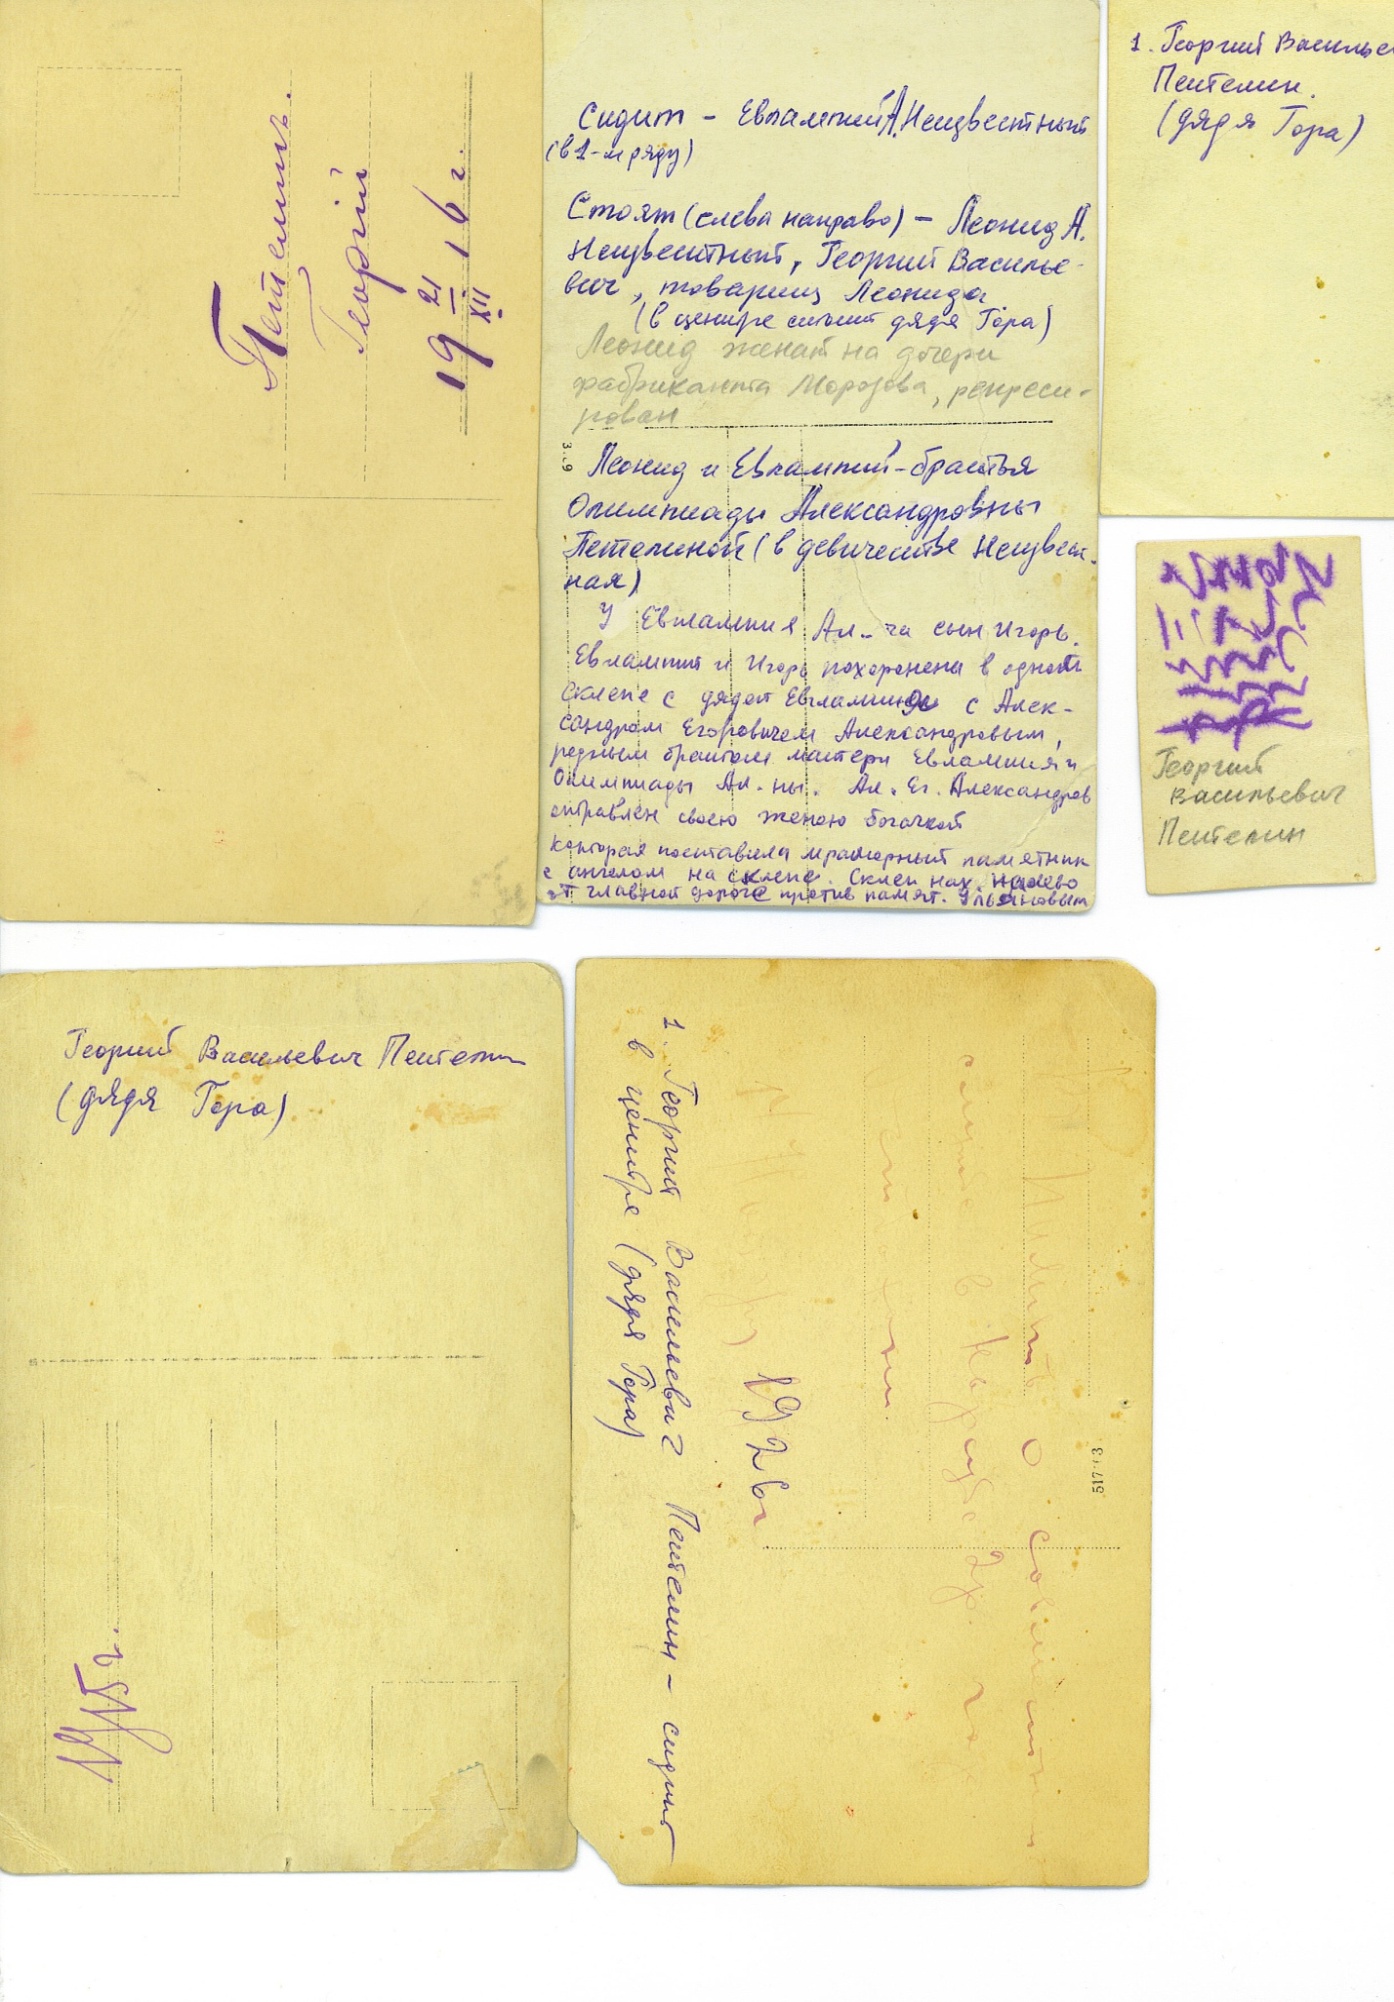 Петелинъ.
Георгій
19 21/XII 16 г.
Сидит – Евлампий А. Неизвестный
(в 1-м ряду)
Стоят (слева направо) – Леонид А.
Неизвестный, Георгий Василье-
вич, товарищ Леонида
(в центре стоит дядя Гора)
Леонид женат на дочери
фабриканта Морозова, репресси-
рован
3.9
Леонид и Евлампий – братья
Олимпиады Александровны
Петелиной (в девичестве Неизвест-
ная)
У Евлампия Ал-ча сын Игорь.
Евлампий и Игорь похоронены в одном
склепе с дядей Евлампия с Алек-
сандром Егоровичем Александровым,
родным братом матери Евлампия и
Олимпиады Ал-ны. Ал. Ег. Александров
отравлен своею женою богачкой
которая поставила мраморный памятник
с ангелом на склепе. Склеп нах. налево
от главной дороге против памят. Ульяновым
1. Георгий Василье
Петелин.
(дядя Гора)
Георгий
Васильевич
Петелин
Георгий Васильевич Петелин
(дядя Гора)
г.
1. Георгий Васильевич Петелин – сидит
в центре (дядя Гора)
1926г
о совместной
службе в
51713